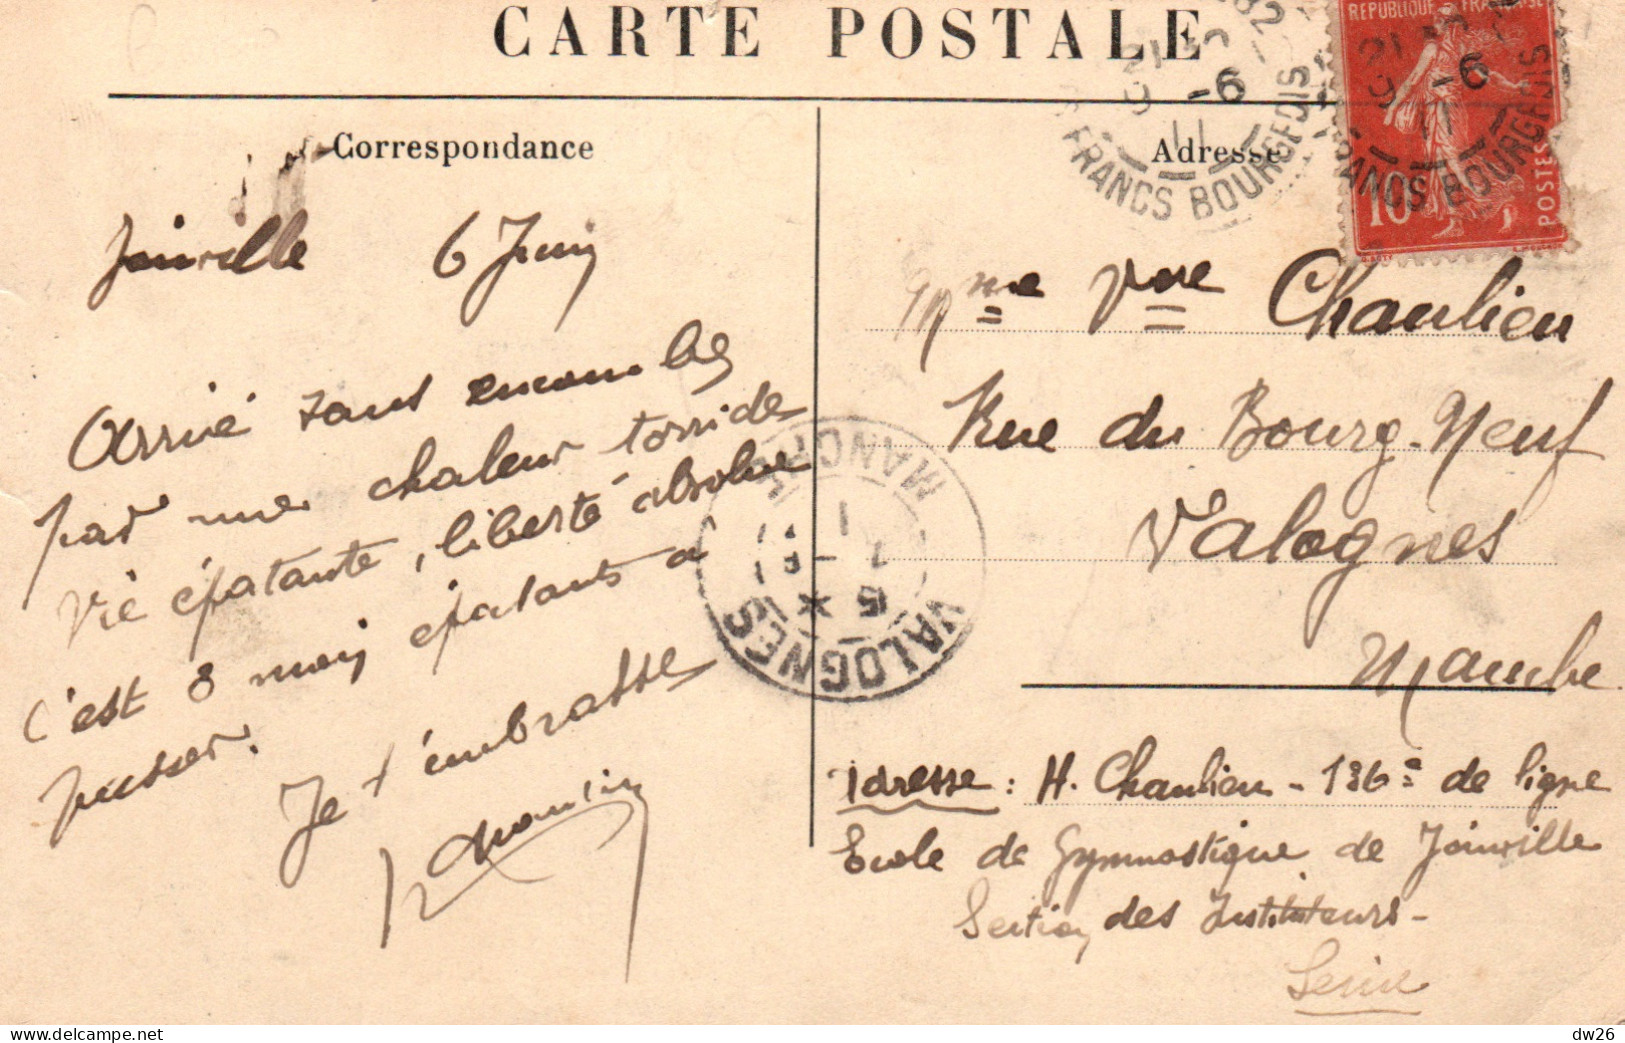 CARTE POSTALE
Correspondance
Joinville 6 Juin
Arrivé sans encombre
par une chaleur torride
Vie épatante, liberté absolue
c'est 8 mois épatants à
passer.
Je t'embrasse
Adresse
Mme Vve Chaulieu
Rue du Bourg-Neuf
Valognes
Manche
Adresse : H. Chaulieu - 136e de ligne
Ecole de Gymnastique de Joinville
Section des Instituteurs -
Seine
REPUBLIQUE FRANÇAISE
10
POSTES
-6
11
FRANCS BOURGEOIS
-6
11
FRANCS BOURGEOIS
VALOGNES
MANCHE
dw26